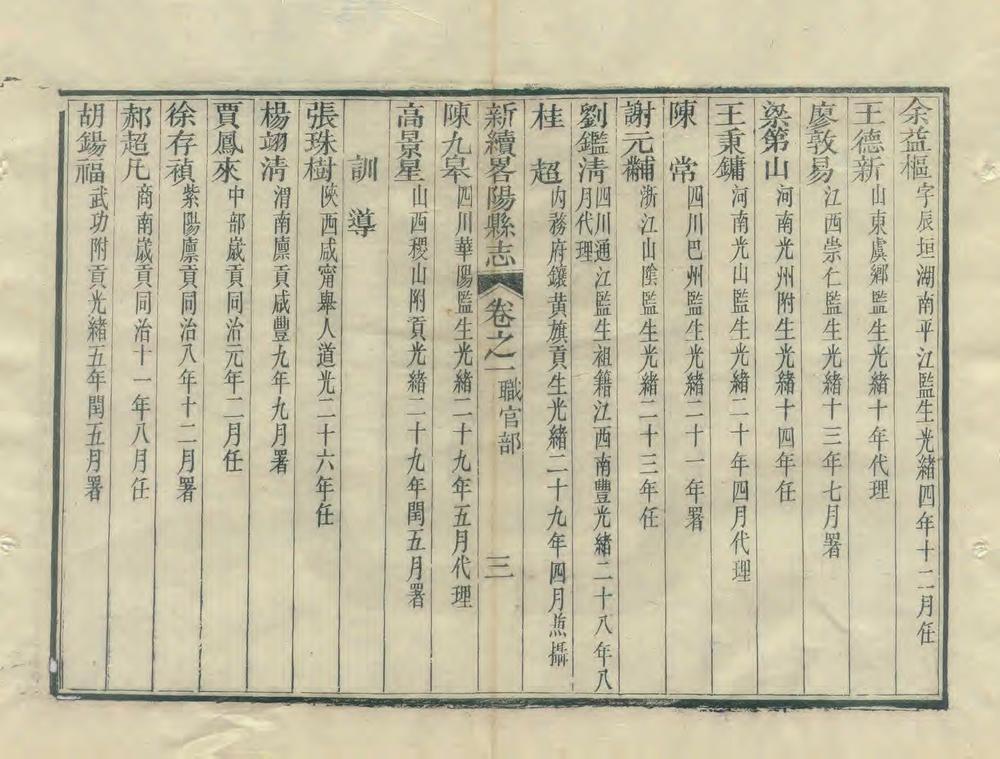 余益樞字辰垣湖南平江監生光緒四年十二月任
王德新山東虞鄉監生光緒十年代理
廖敦易江西崇仁監生光緒十三年七月署
梁第山河南光州附生光緒十四年任
王秉鏞河南光山監生光緒二十年四月代理
陳常四川巴州監生光緒二十一年署
謝元黼浙江山陰監生光緒二十三年任
劉鑑淸四川通江監生祖籍江西南豐光緒二十八年八月代理
桂超內務府鑲黄旗貢生光緒二十九年四月兼攝
新續畧陽縣志 卷之一 職官部 三
陳九皋四川華陽監生光緒二十九年五月代理
高景星山西稷山附貢光緒二十九年閏五月署
訓導
張珠樹陝西咸甯舉人道光二十六年任
楊翊淸渭南廪貢咸豐九年九月署
賈鳳來中部嵗貢同治元年二月任
徐存禎紫陽廪貢同治八年十二月署
郝超凡商南嵗貢同治十一年八月任
胡錫福武功附貢光緒五年閏五月署